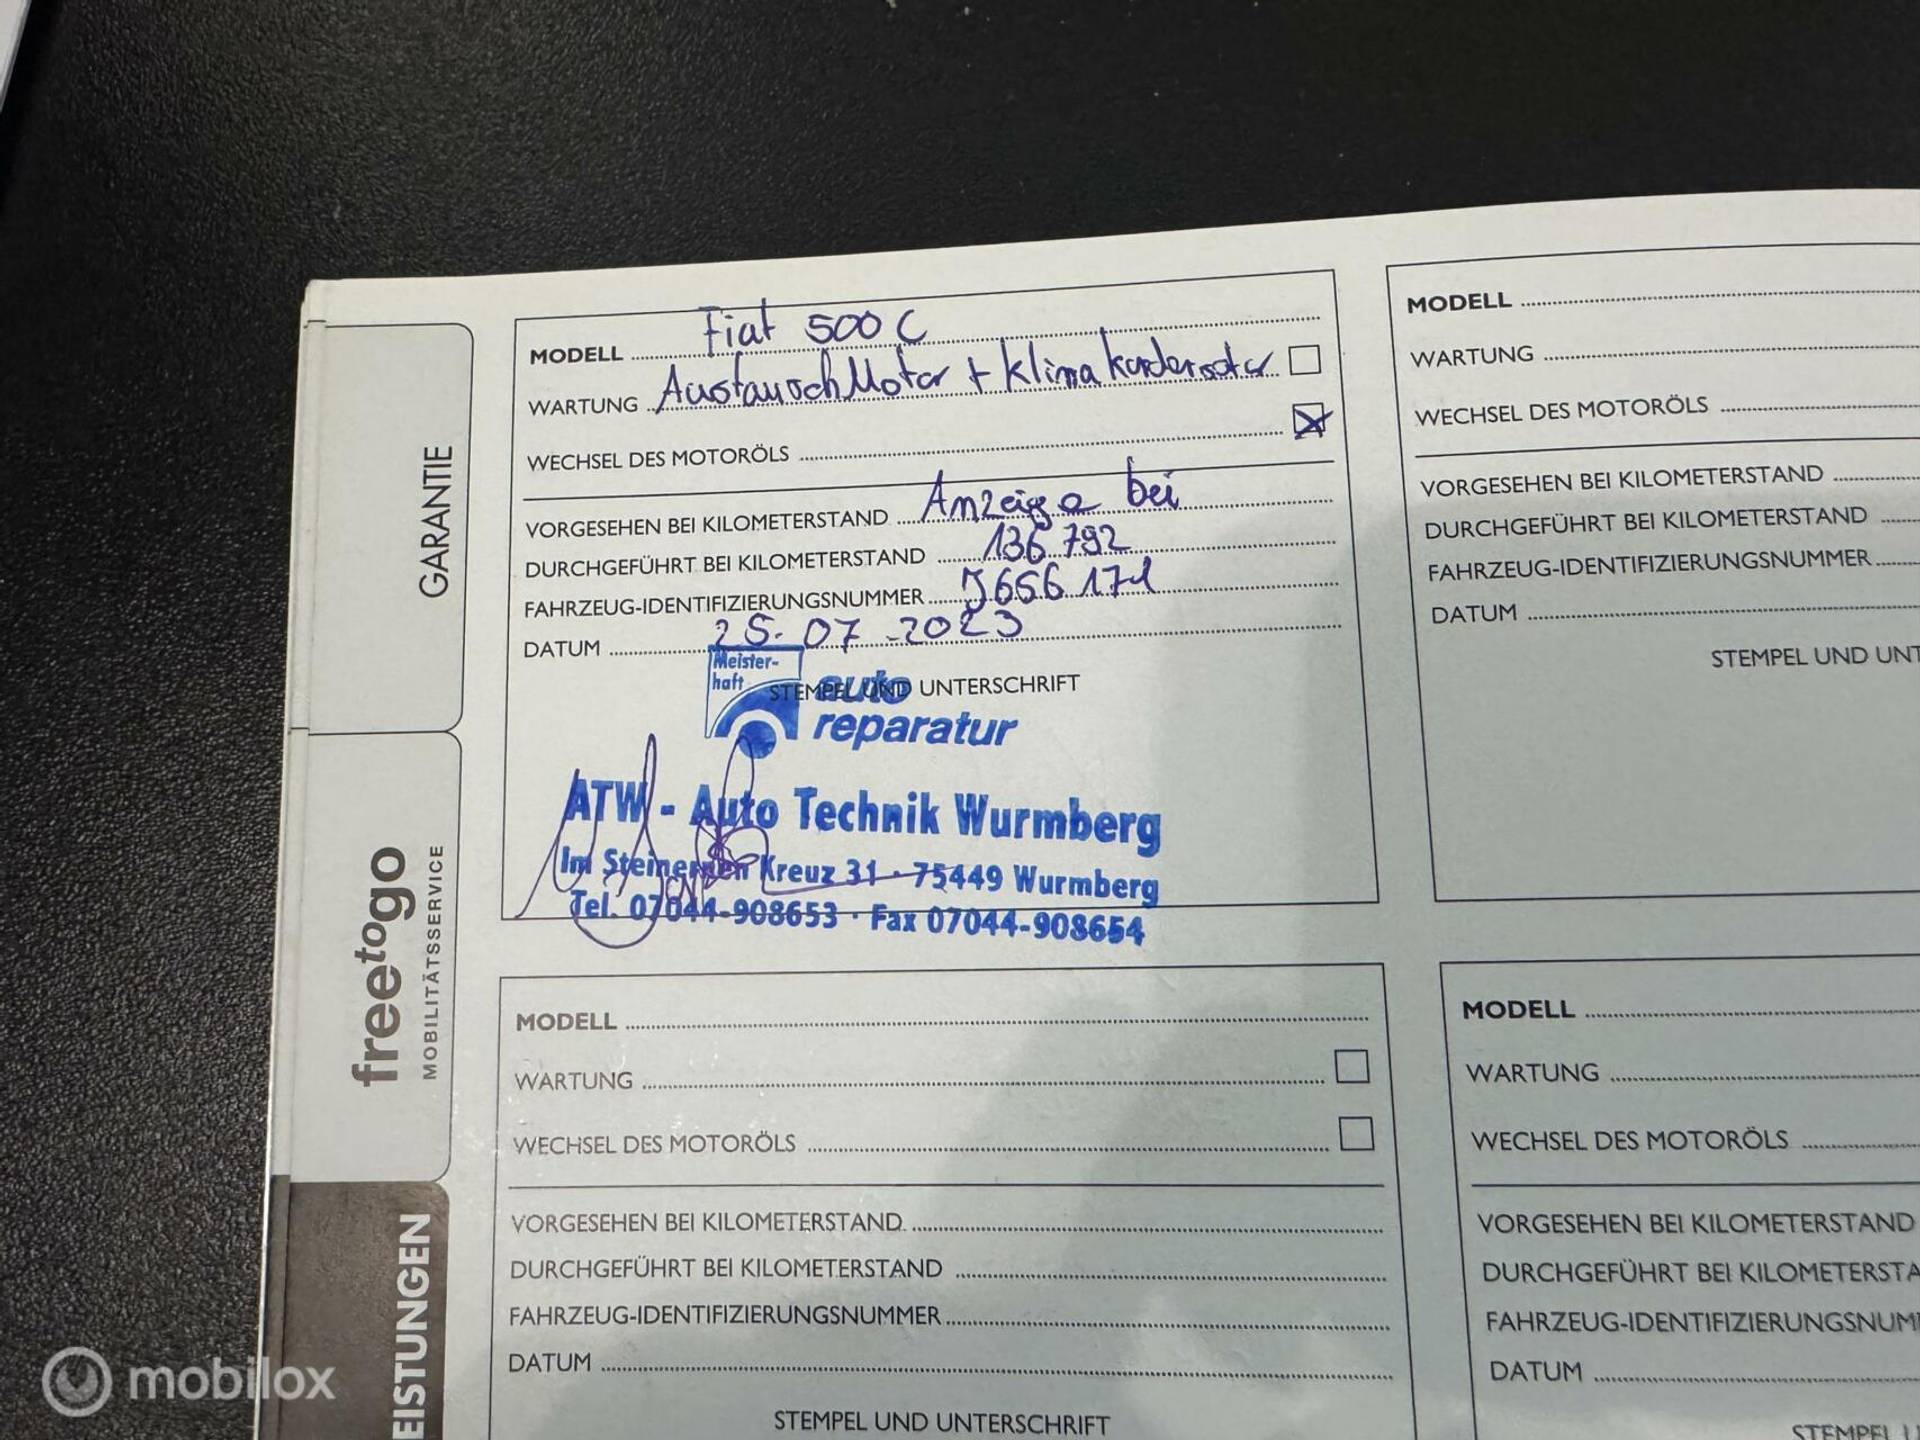 MODELL Fiat 500 C
WARTUNG Austausch Motor + Klima Kondensator
WECHSEL DES MOTORÖLS
VORGESEHEN BEI KILOMETERSTAND Anzeige bei
DURCHGEFÜHRT BEI KILOMETERSTAND 136 792
FAHRZEUG-IDENTIFIZIERUNGSNUMMER J656 171
DATUM 25.07.2023
STEMPEL UND UNTERSCHRIFT
Meister-
haft
auto
reparatur
ATW - Auto Technik Wurmberg
Im Steinernen Kreuz 31 · 75449 Wurmberg
Tel. 07044-908653 · Fax 07044-908654
MODELL
WARTUNG
WECHSEL DES MOTORÖLS
VORGESEHEN BEI KILOMETERSTAND
DURCHGEFÜHRT BEI KILOMETERSTAND
FAHRZEUG-IDENTIFIZIERUNGSNUMMER
DATUM
STEMPEL UND UNT
MODELL
WARTUNG
WECHSEL DES MOTORÖLS
VORGESEHEN BEI KILOMETERSTAND
DURCHGEFÜHRT BEI KILOMETERSTAND
FAHRZEUG-IDENTIFIZIERUNGSNUMMER
DATUM
STEMPEL UND UNTERSCHRIFT
MODELL
WARTUNG
WECHSEL DES MOTORÖLS
VORGESEHEN BEI KILOMETERSTAND
DURCHGEFÜHRT BEI KILOMETERSTA
FAHRZEUG-IDENTIFIZIERUNGSNUM
DATUM
STEMPEL U
GARANTIE
freetogo
MOBILITÄTSSERVICE
EISTUNGEN
mobilox